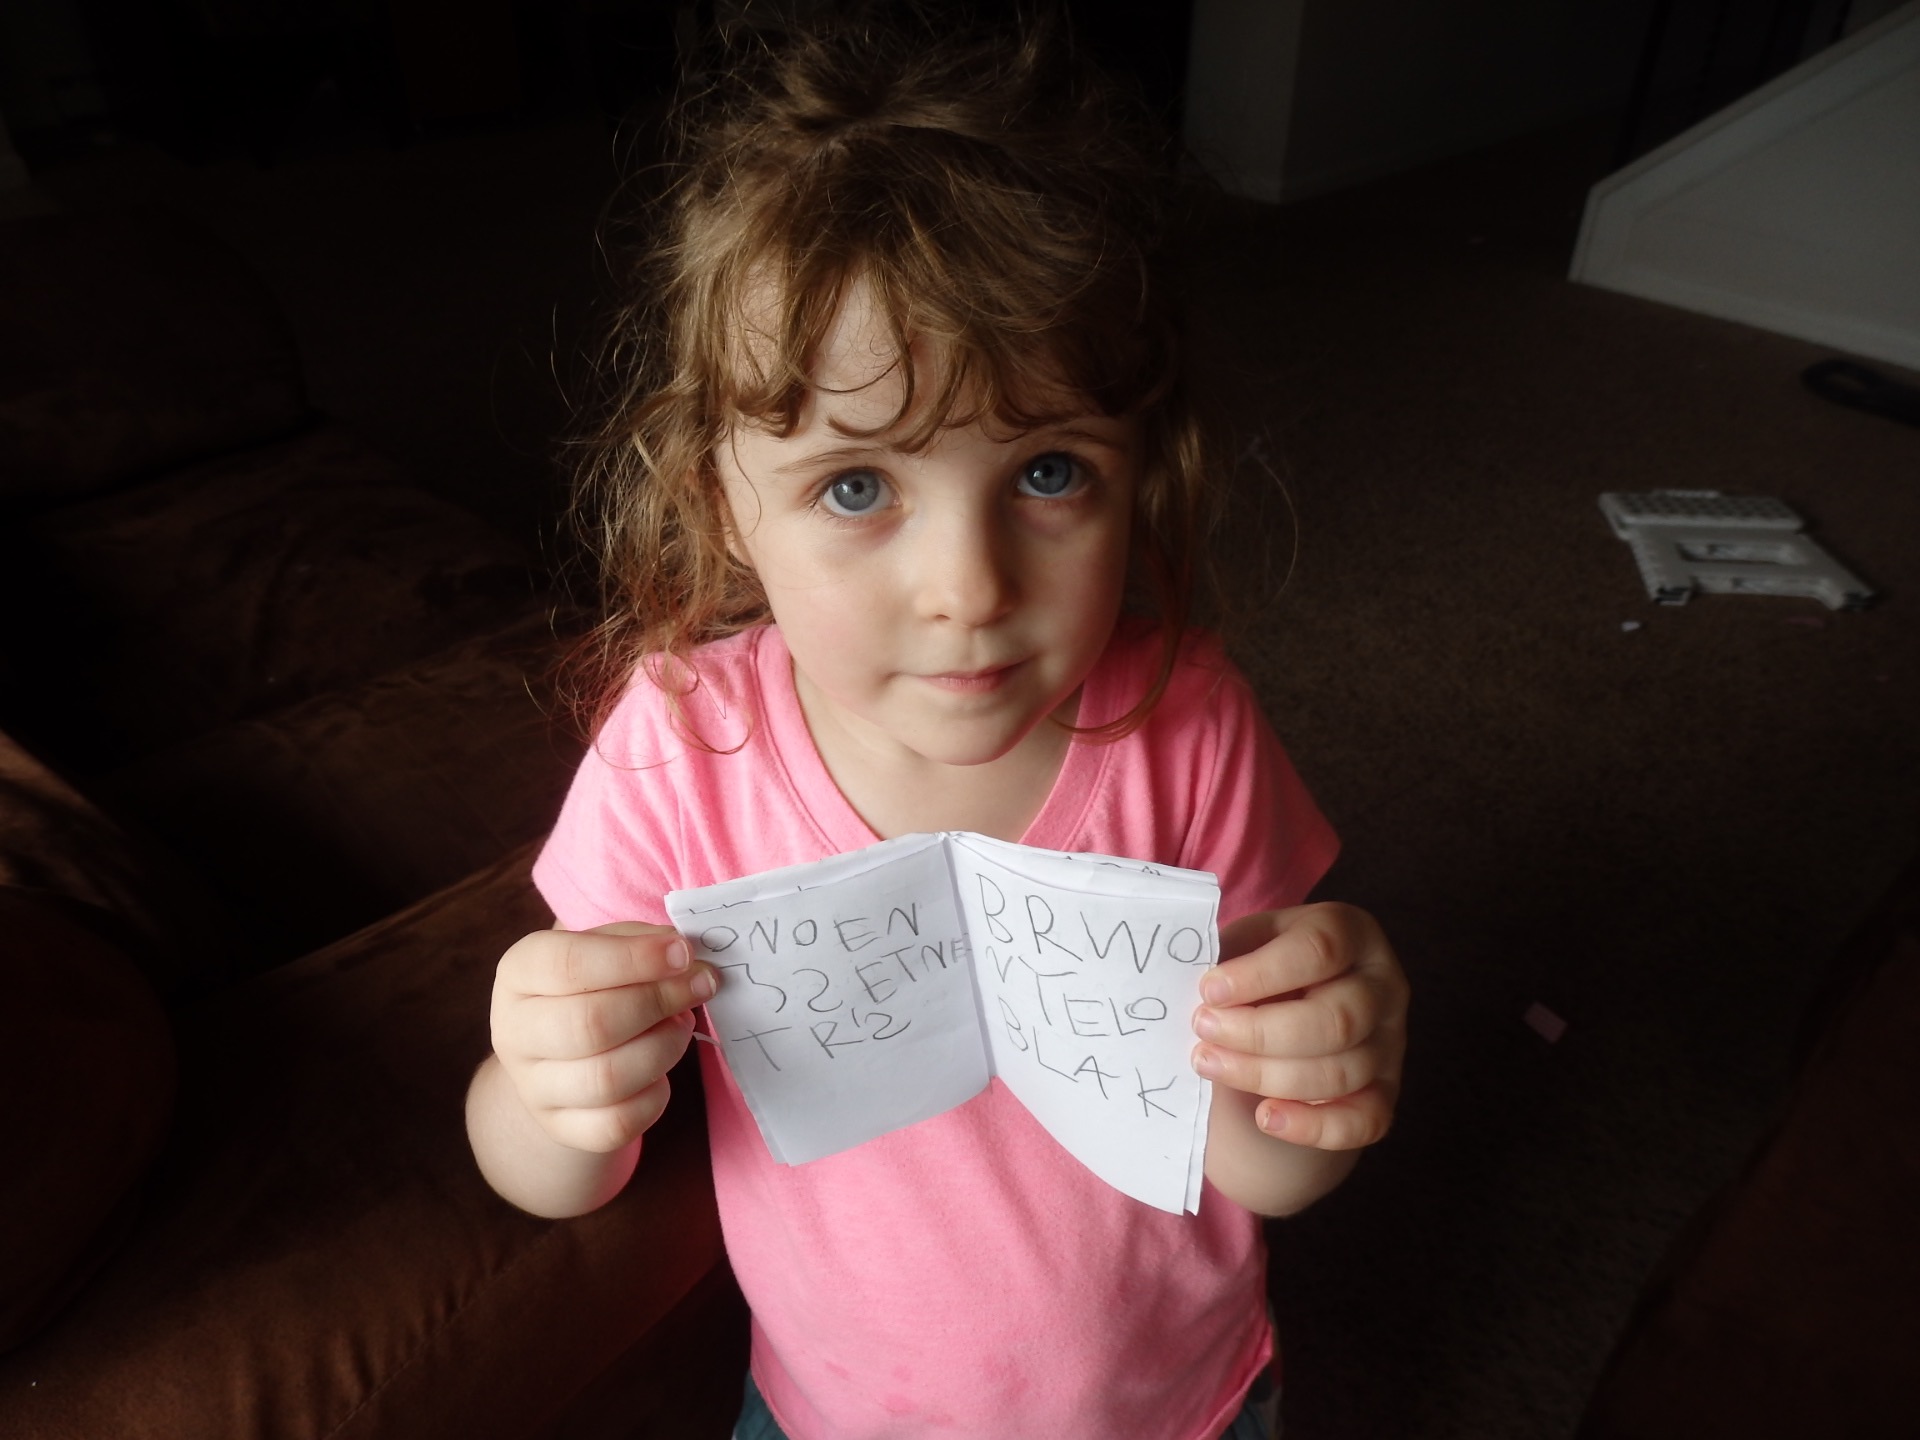 ONOEN
32ETNE
TRIZ
BRWO
NTELO
BLAK